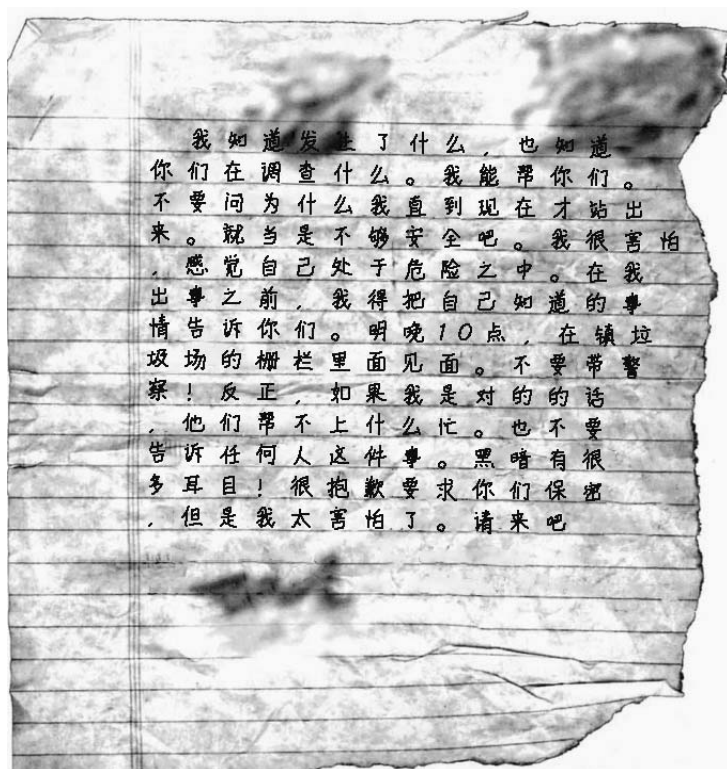 我知道发生了什么，也知道
你们在调查什么。我能帮你们。
不要问为什么我直到现在才站出
来。就当是不够安全吧。我很害怕
，感觉自己处于危险之中。在我
出事之前，我得把自己知道的事
情告诉你们。明晚10点，在镇垃
圾场的栅栏里面见面。不要带警
察！反正，如果我是对的的话
，他们帮不上什么忙。也不要
告诉任何人这件事。黑暗有很
多耳目！很抱歉要求你们保密
，但是我太害怕了。请来吧